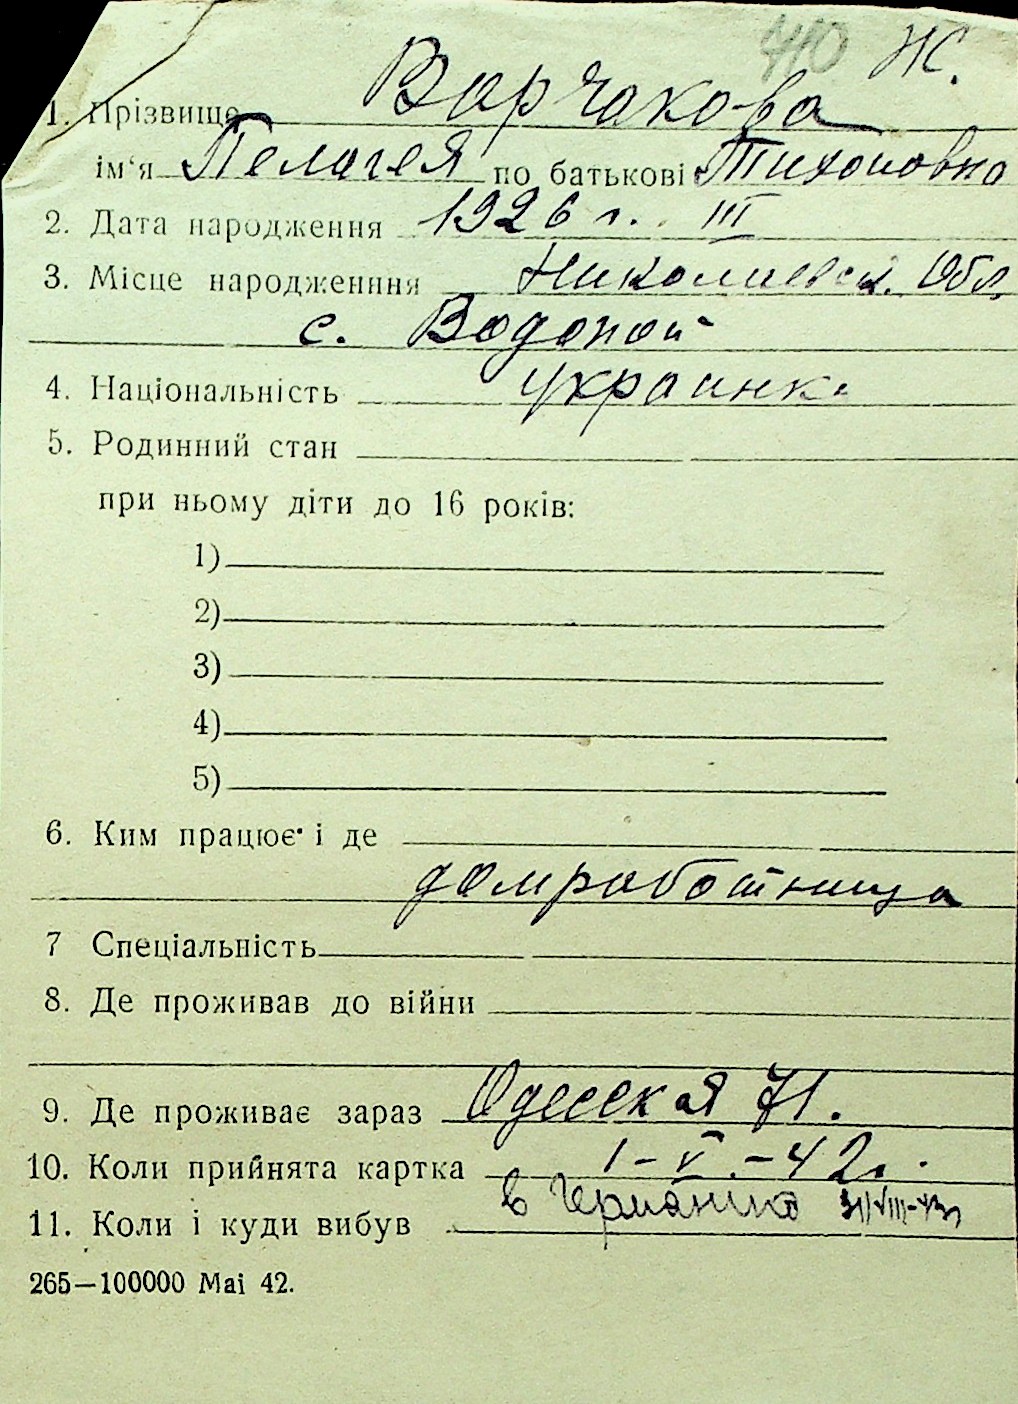 710 Ж.
1. Прізвище Варчакова
ім'я Пелагея по батькові Тихоновна
2. Дата народження 1926 г. III
3. Місце народженння Николаевск. Обл.
с. Водопой
4. Національність украинка
5. Родинний стан
при ньому діти до 16 років:
1)
2)
3)
4)
5)
6. Ким працює і де
домработница
7 Спеціальність
8. Де проживав до війни
9. Де проживає зараз Одесская 71.
10. Коли прийнята картка 1-V-42.
11. Коли і куди вибув в Германию
265—100000 Mai 42.